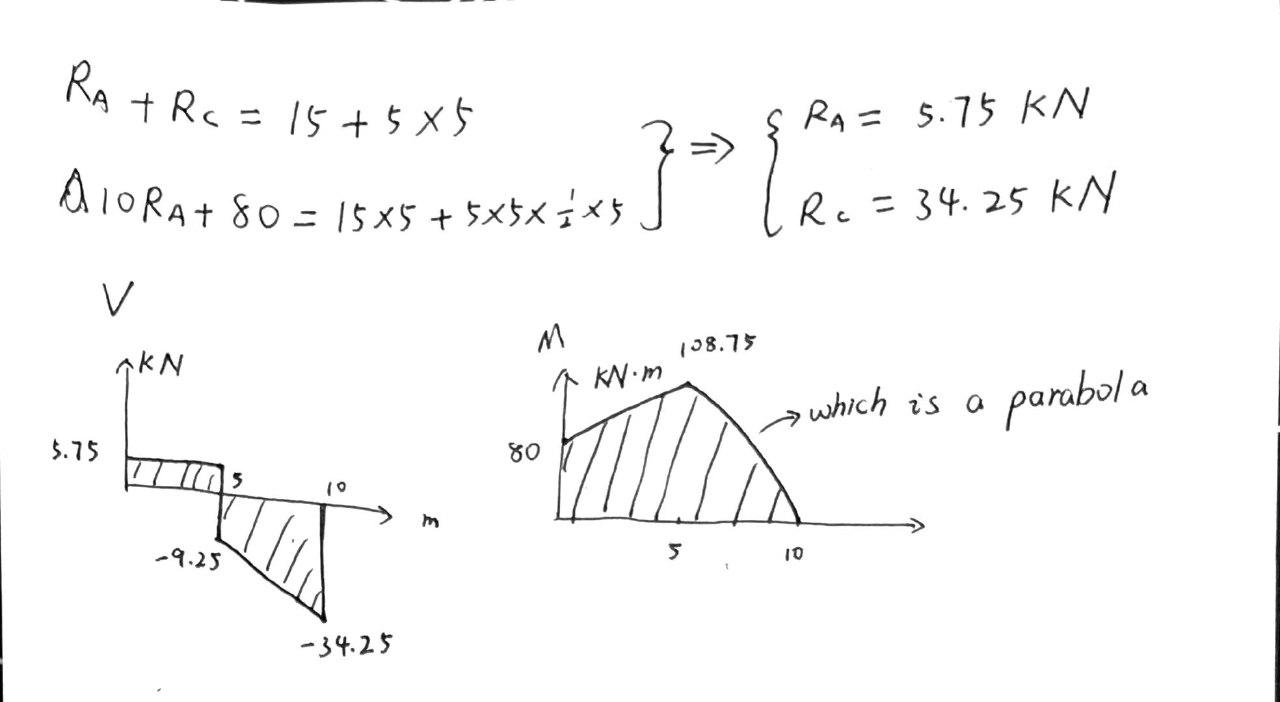 R_A + R_C = 15 + 5 × 5
10R_A + 80 = 15×5 + 5×5×½×5
} ⇒ {
R_A = 5.75 KN
R_C = 34.25 KN
V
KN
5.75
5
10
m
-9.25
-34.25
M
108.75
KN·m
→ which is a parabola
80
5
10